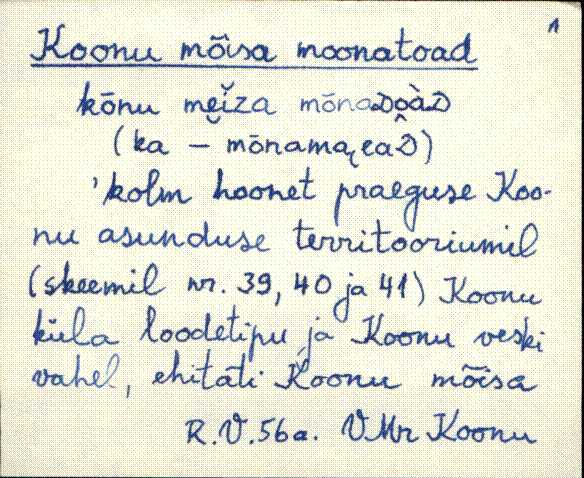 1
Koonu mõisa moonatoad
kōnu mẹĭza mōnaᴅo̭àᴅ
(ka – mōnamaᴉeaᴅ)
'kolm hoonet praeguse Koo-
nu asunduse territooriumil
(skeemil nr. 39, 40 ja 41) Koonu
küla loodetipu ja Koonu veski
vahel, ehitati Koonu mõisa
R.V.56a. VMr Koonu